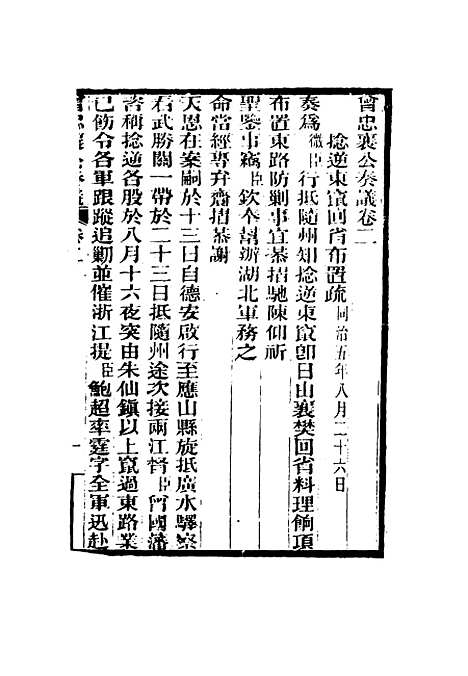 曾忠襄公奏議卷二
捻逆東竄回省布置疏 同治五年八月二十六日
奏爲微臣行抵隨州知捻逆東竄卽日由襄樊回省料理餉項
布置東路防剿事宜恭摺馳陳仰祈
聖鑒事竊臣欽奉幫辦湖北軍務之
命當經專弁齎摺恭謝
天恩在案嗣於十三日自德安啟行至應山縣旋抵廣水驛察
看武勝關一帶於二十三日抵隨州途次接兩江督臣曾國藩
咨稱捻逆各股於八月十六夜突由朱仙鎮以上竄過東路業
已飭令各軍跟蹤追勦並催浙江提臣鮑超率霆字全軍迅赴